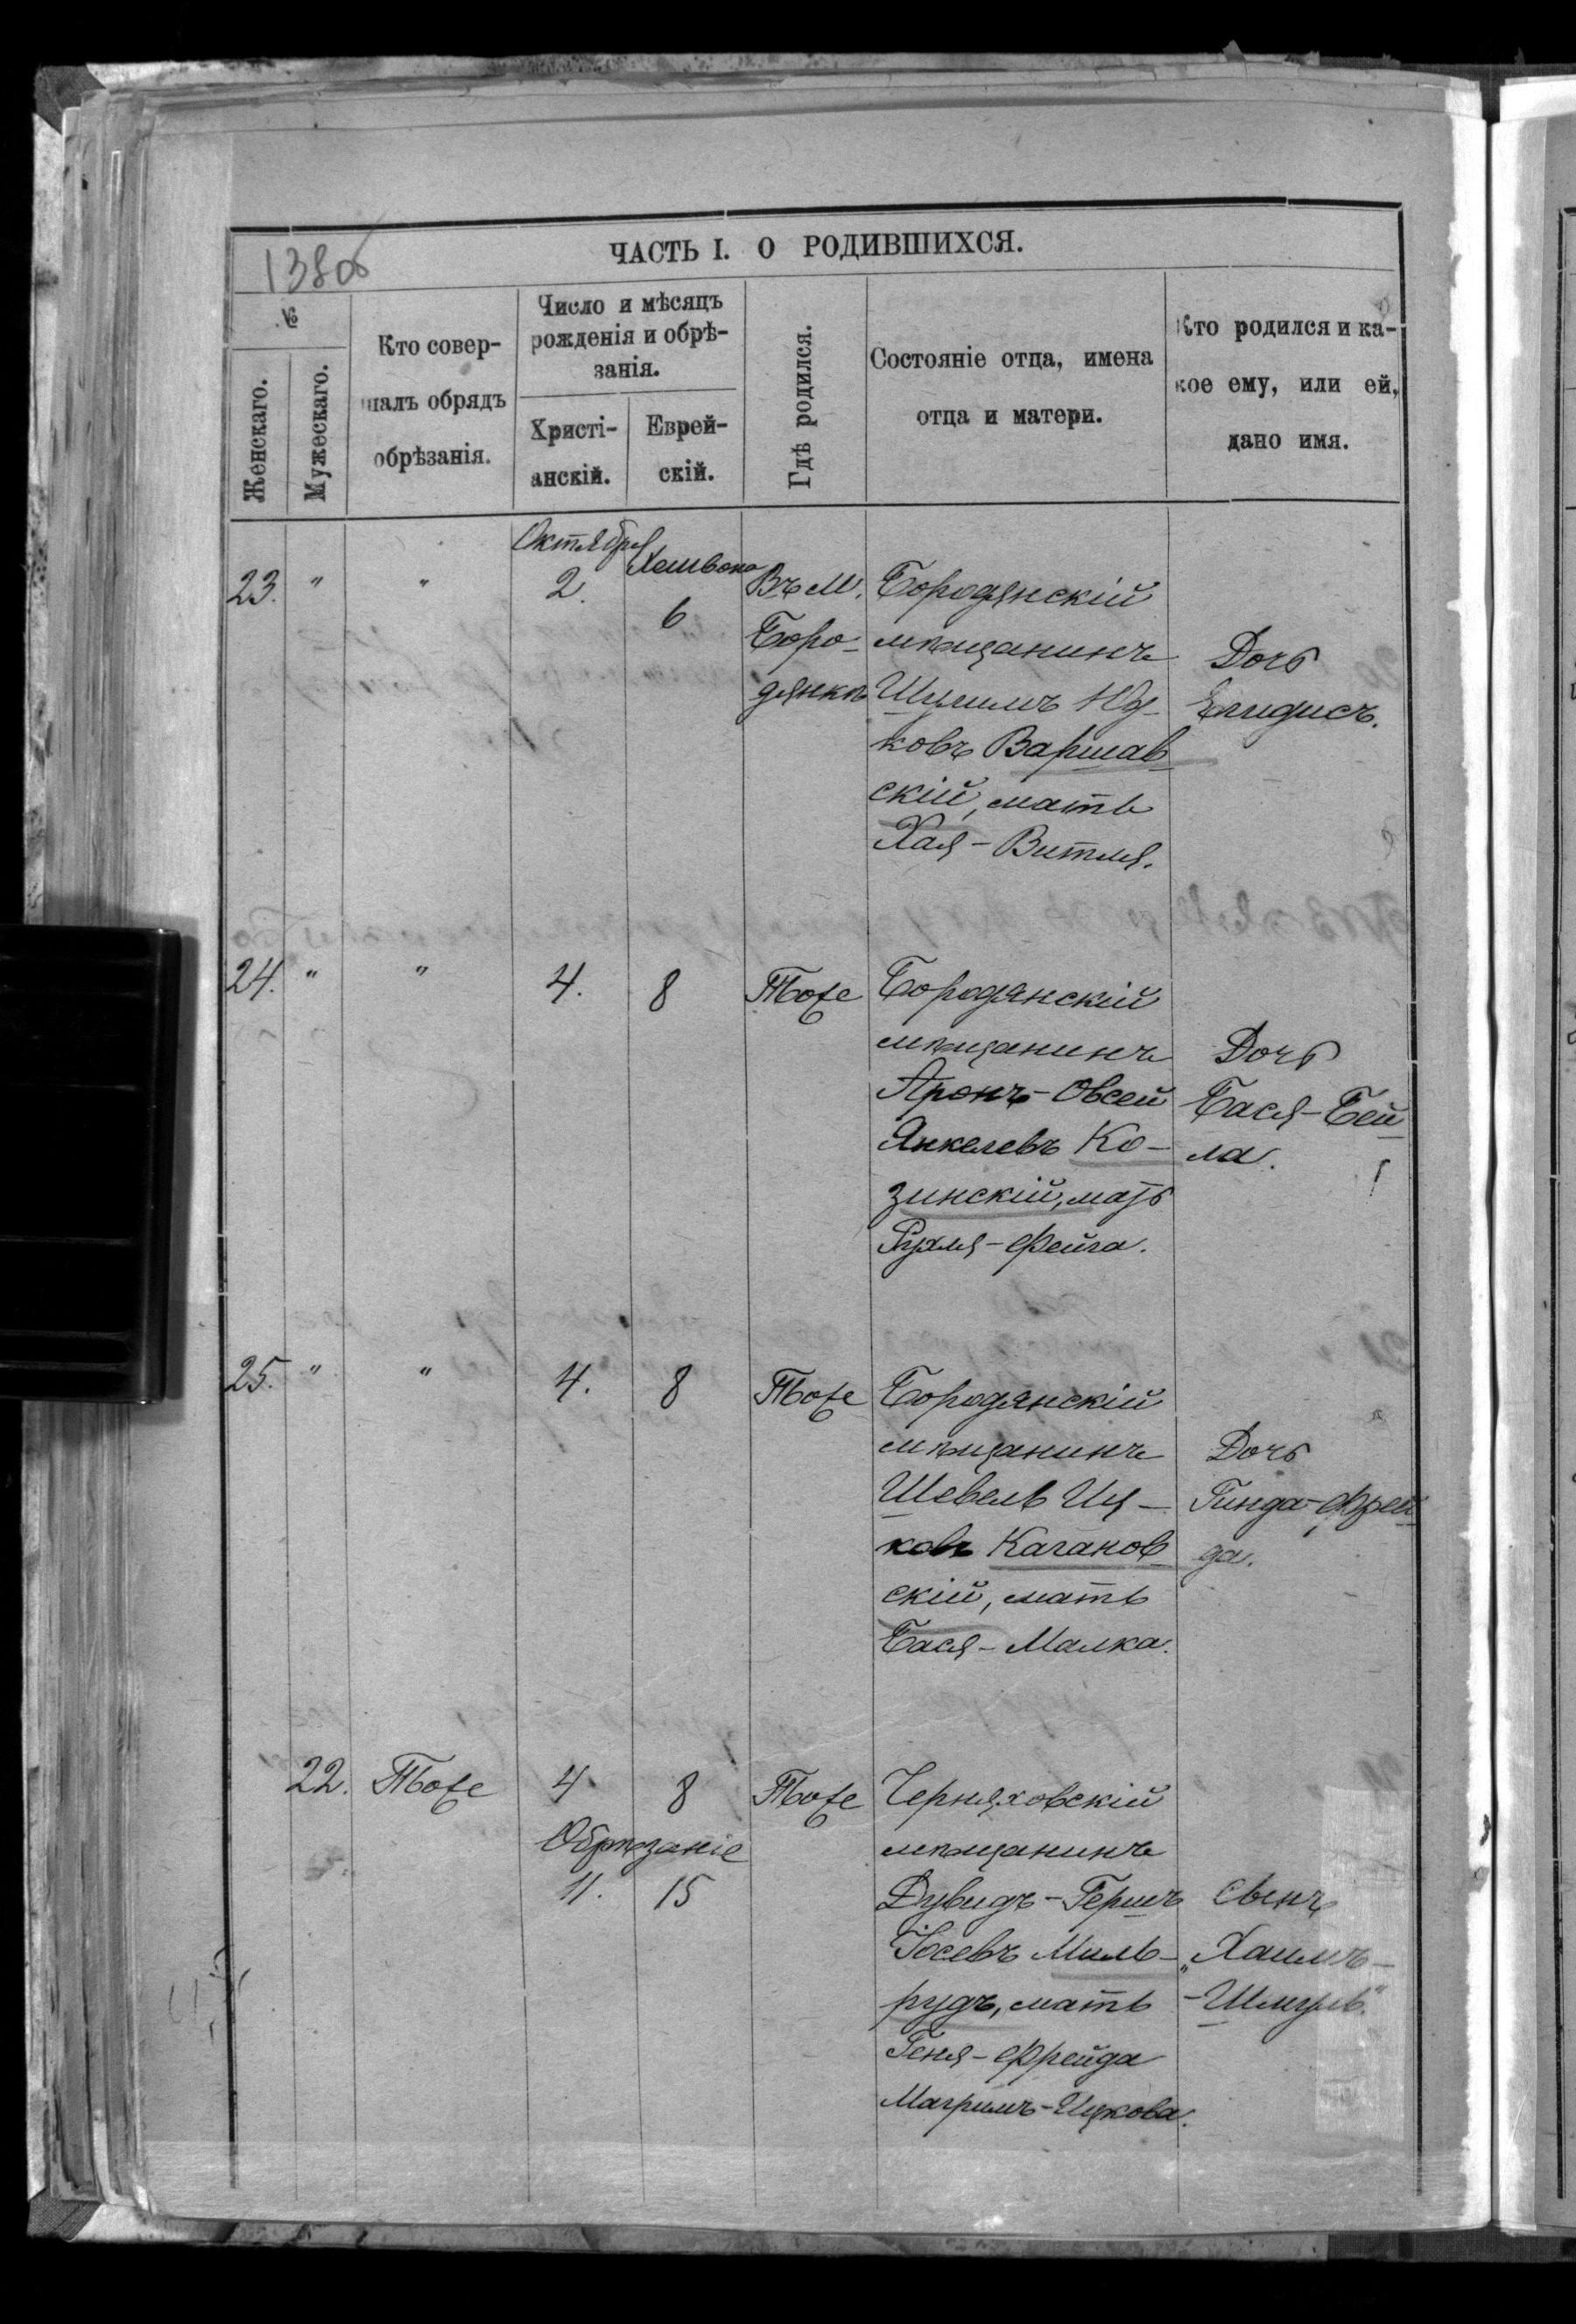 138об
ЧАСТЬ I. О РОДИВШИХСЯ.
№
Женскаго.
Мужескаго.
Кто совер-
шалъ обрядъ
обрѣзанія.
Число и мѣсяцъ
рожденія и обрѣ-
занія.
Христі-
анскій.
Еврей-
скій.
Гдѣ родился.
Состояніе отца, имена
отца и матери.
Кто родился и ка-
кое ему, или ей,
дано имя.
Октября
Хешвона
23. " " 2. 6
Въ м.
Боро-
дянкѣ
Бородянскій
мѣщанинъ
Шулимъ Юд-
ковъ Варшав
скій, мать
Хая-Витля.
Дочь
Елидисъ.
24. " " 4. 8 Тоже
Бородянскій
мѣщанинъ
Аронъ-Овсей
Янкелевъ Ко-
зинскій, мать
Рухля-Фейга.
Дочь
Бася-Бей
ла.
25. " " 4. 8 Тоже
Бородянскій
мѣщанинъ
Шевель Иц-
ковъ Каганов
скій, мать
Бася-Малка.
Дочь
Гинда-Фрей
да.
22. Тоже 4 8 Тоже
Обрѣзаніе
11. 15
Черняховскій
мѣщанинъ
Дувидъ-Гершъ
Іосевъ Миль-
рудъ, мать
Геня-Фрейда
Магримъ-Ицкова.
Сынъ
„Хаимъ-
-Шмуль"